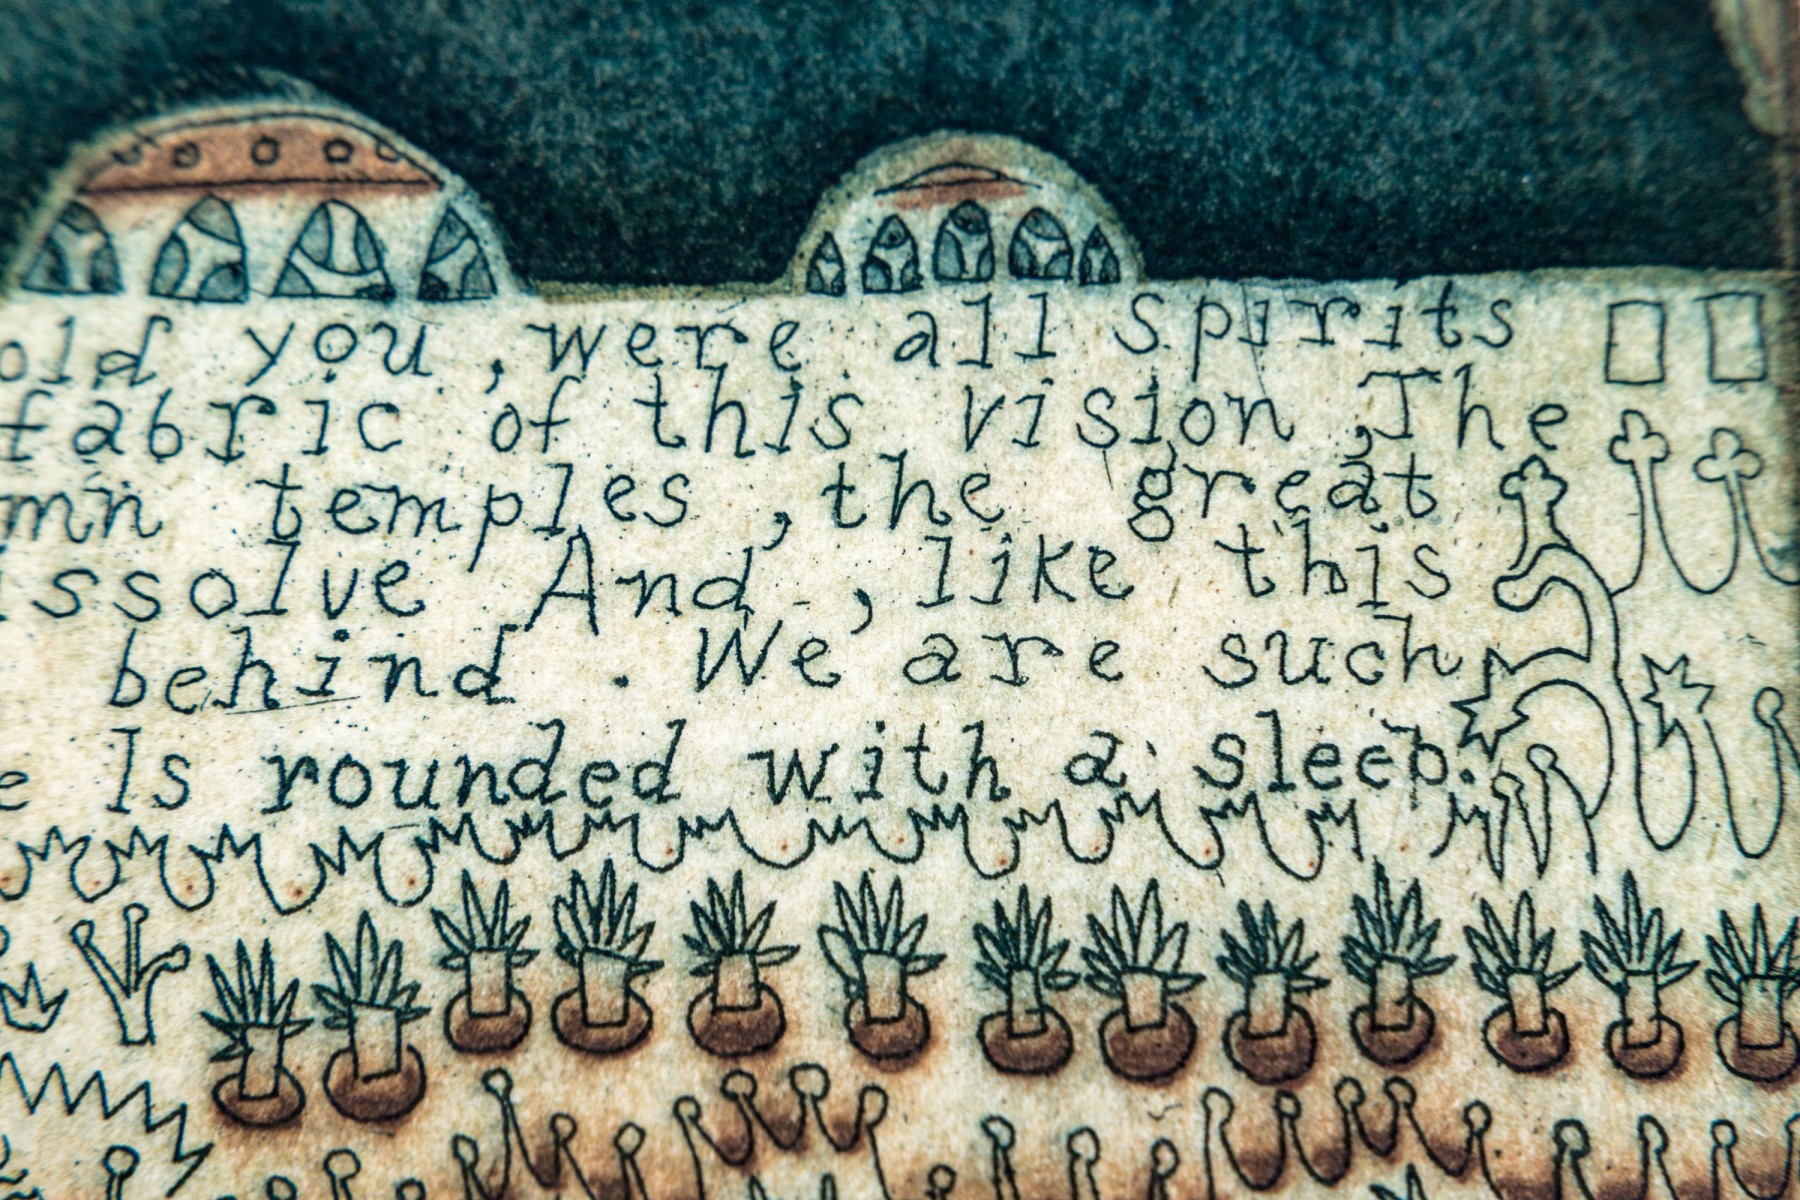 old you , were all spirits
fabric of this vision , The
mn temples , the great
issolve And , like this
behind . We are such
e Is rounded with a sleep.